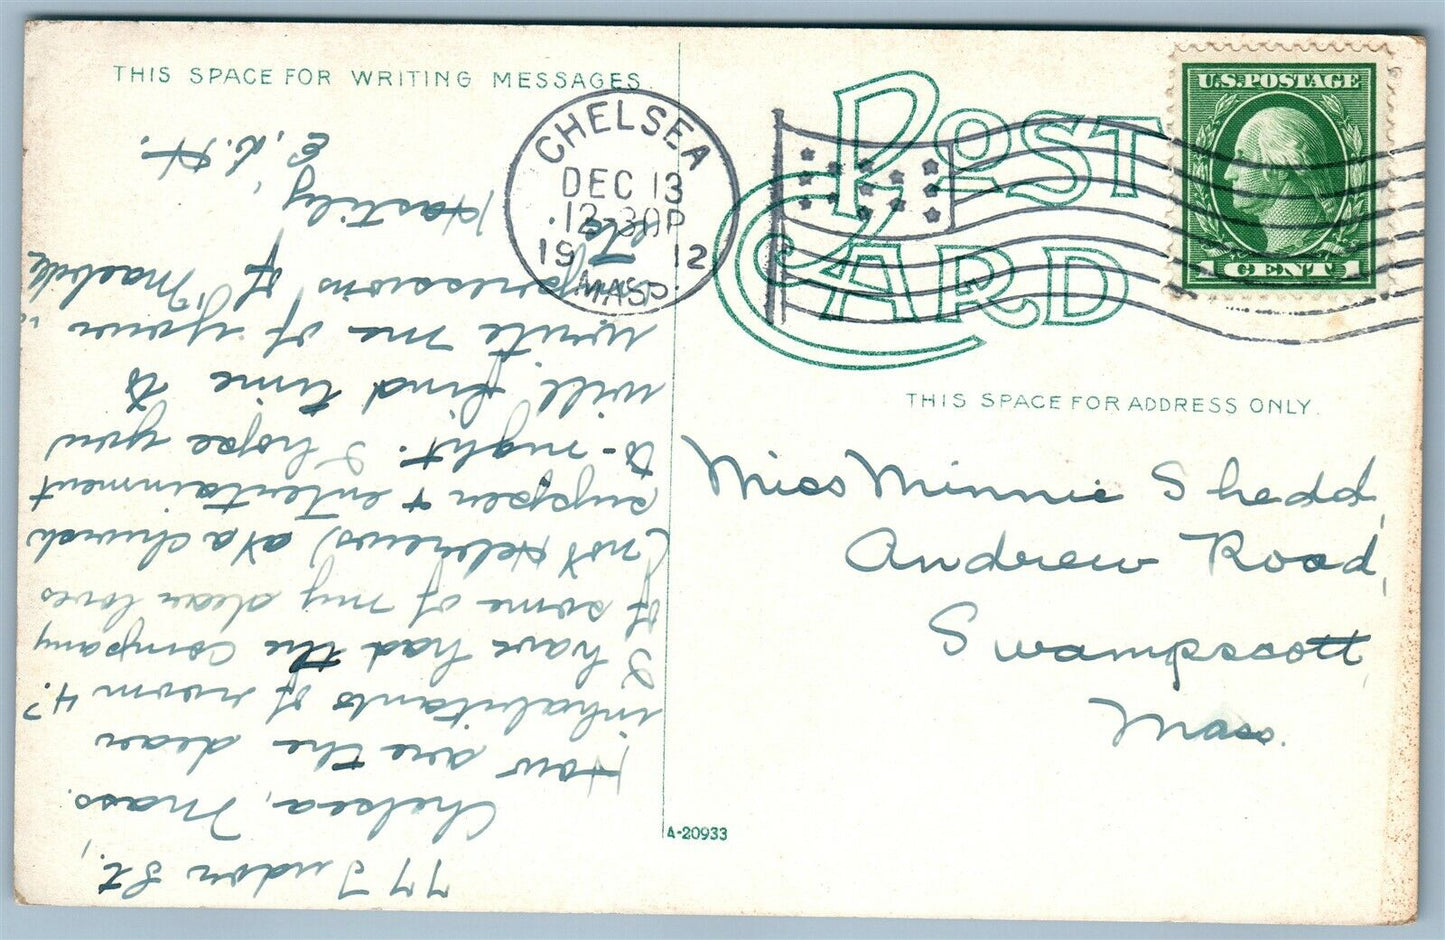 THIS SPACE FOR WRITING MESSAGES.
CHELSEA
DEC 13
12-30P
1912
MASS.
POST
CARD
U.S. POSTAGE
1 CENT 1
THIS SPACE FOR ADDRESS ONLY.
Miss Minnie Shedd,
Andrew Road,
Swampscott
Mass.
A-20933
77 Tudor St.,
Chelsea, Mass.
How are the dear
inhabitants of room 4?
I have had the company
of some of my dear loves
(not Hebrews) at a church
supper & entertainment
to-night. I hope you
will find time to
write me of your
impressions of "Macbeth
Hastily,
E. L. H.